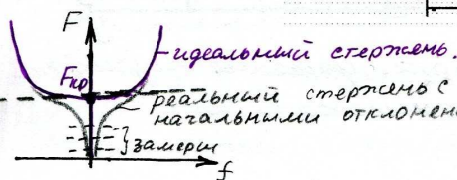 F
идеальный стержень.
Fкр
реальный стержень с
начальными отклонен
замеры
f